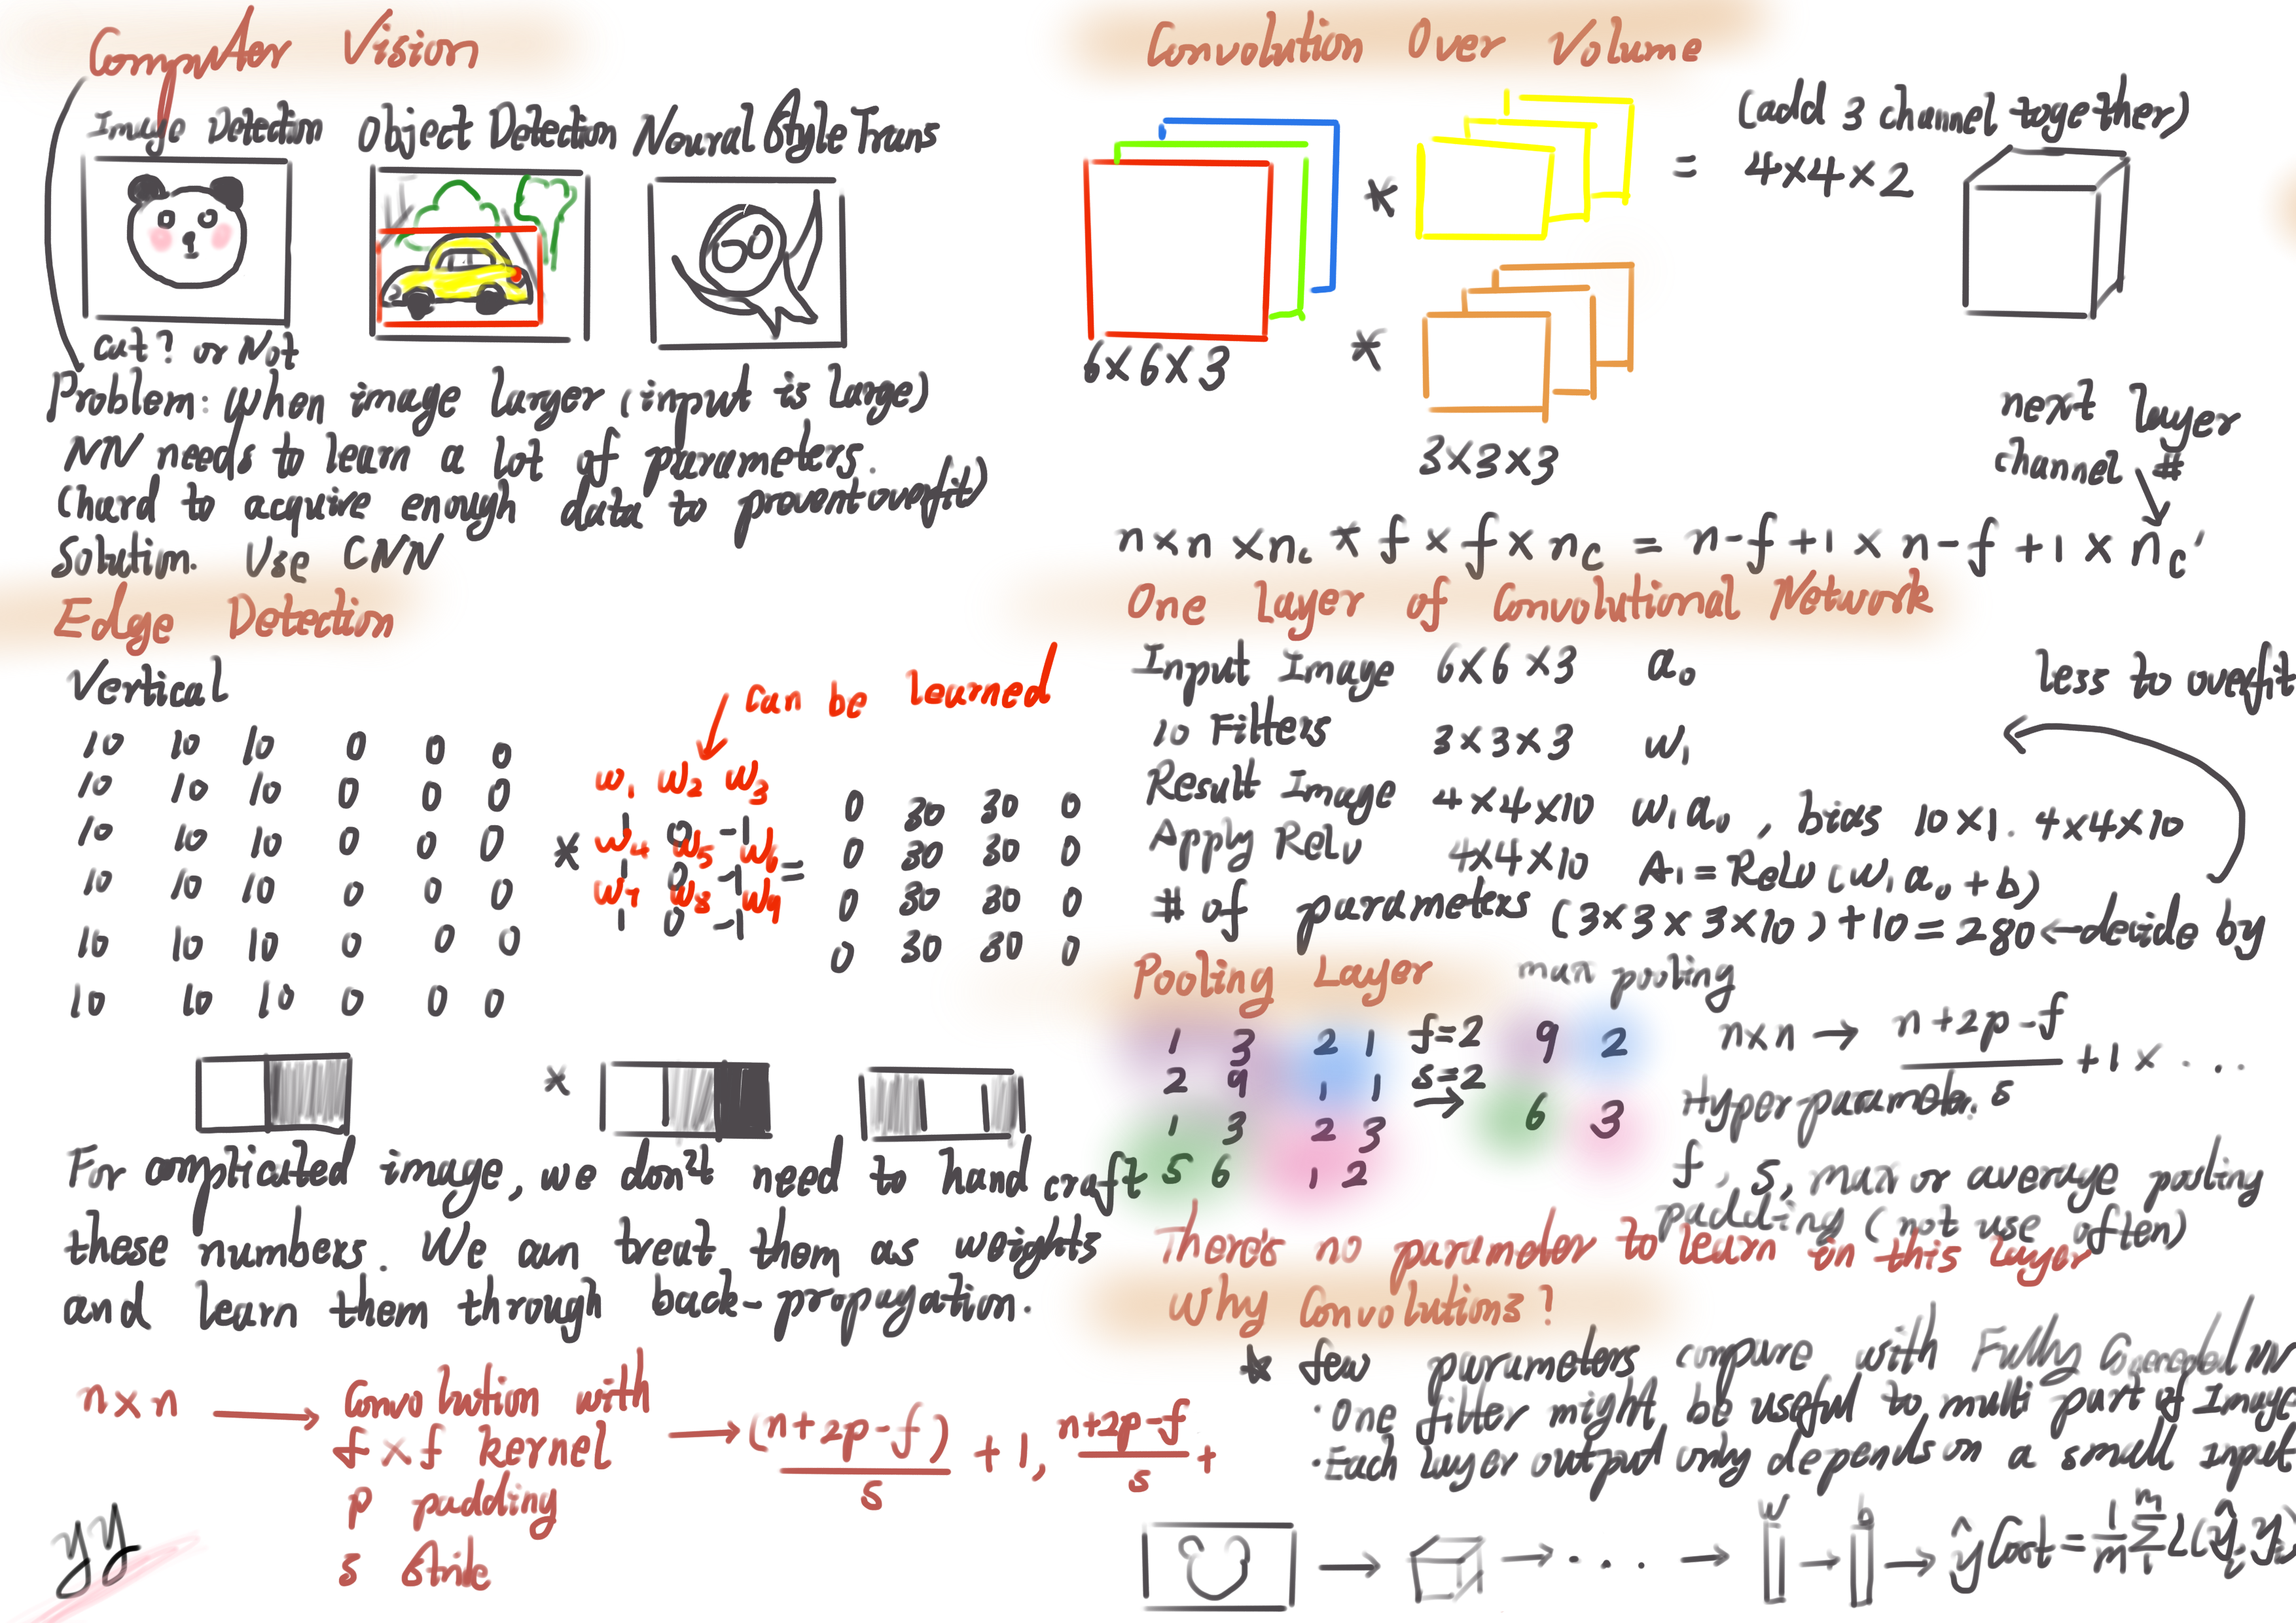 Computer Vision
Image Detection Object Detection Noural Style Trans
cat? or Not
Problem: when image larger (input is large)
NN needs to learn a lot of parameters.
(hard to acquire enough data to provent overfit)
Solution. Use CNN
Edge Detection
Vertical
can be learned
10 10 10 0 0 0
10 10 10 0 0 0
10 10 10 0 0 0
10 10 10 0 0 0
10 10 10 0 0 0
10 10 10 0 0 0
*
w1 w2 w3
1 0 -1
w4 w5 w6
1 0 -1
w7 w8 w9
1 0 -1
=
0 30 30 0
0 30 30 0
0 30 30 0
0 30 30 0
*
For complicated image, we don't need to hand craft
these numbers. We can treat them as weights
and learn them through back-propagation.
n×n → Convolution with → (n+2p-f)/s +1, n+2p-f/s +
f×f kernel
p padding
s stride
yy
Convolution Over Volume
(add 3 channel together)
* = 4×4×2
6×6×3 *
3×3×3
next layer
channel #
n×n×nc * f×f×nc = n-f+1 × n-f+1 × nc'
One Layer of Convolutional Network
Input Image 6×6×3 a0
less to overfit
10 Filters 3×3×3 w1
Result Image 4×4×10 w1a0, bias 10×1. 4×4×10
Apply Relu 4×4×10 A1=ReLU(w1a0+b)
# of parameters (3×3×3×10)+10=280←decide by
Pooling Layer max pooling
1 3 2 1 f=2 9 2
2 9 1 1 s=2
→
1 3 2 3 6 3
5 6 1 2
n×n → n+2p-f/s +1 × ...
Hyper-parameter.
f, s, max or average pooling
padding (not use often)
There's no parameter to learn in this layer
Why Convolutions?
* few parameters compare with Fully Connected NN
·One filter might be useful to multi part of Image
·Each layer output only depends on a small Input
w b
→ → ... → → → ŷ Cost = 1/m Σ L(ŷ, y)